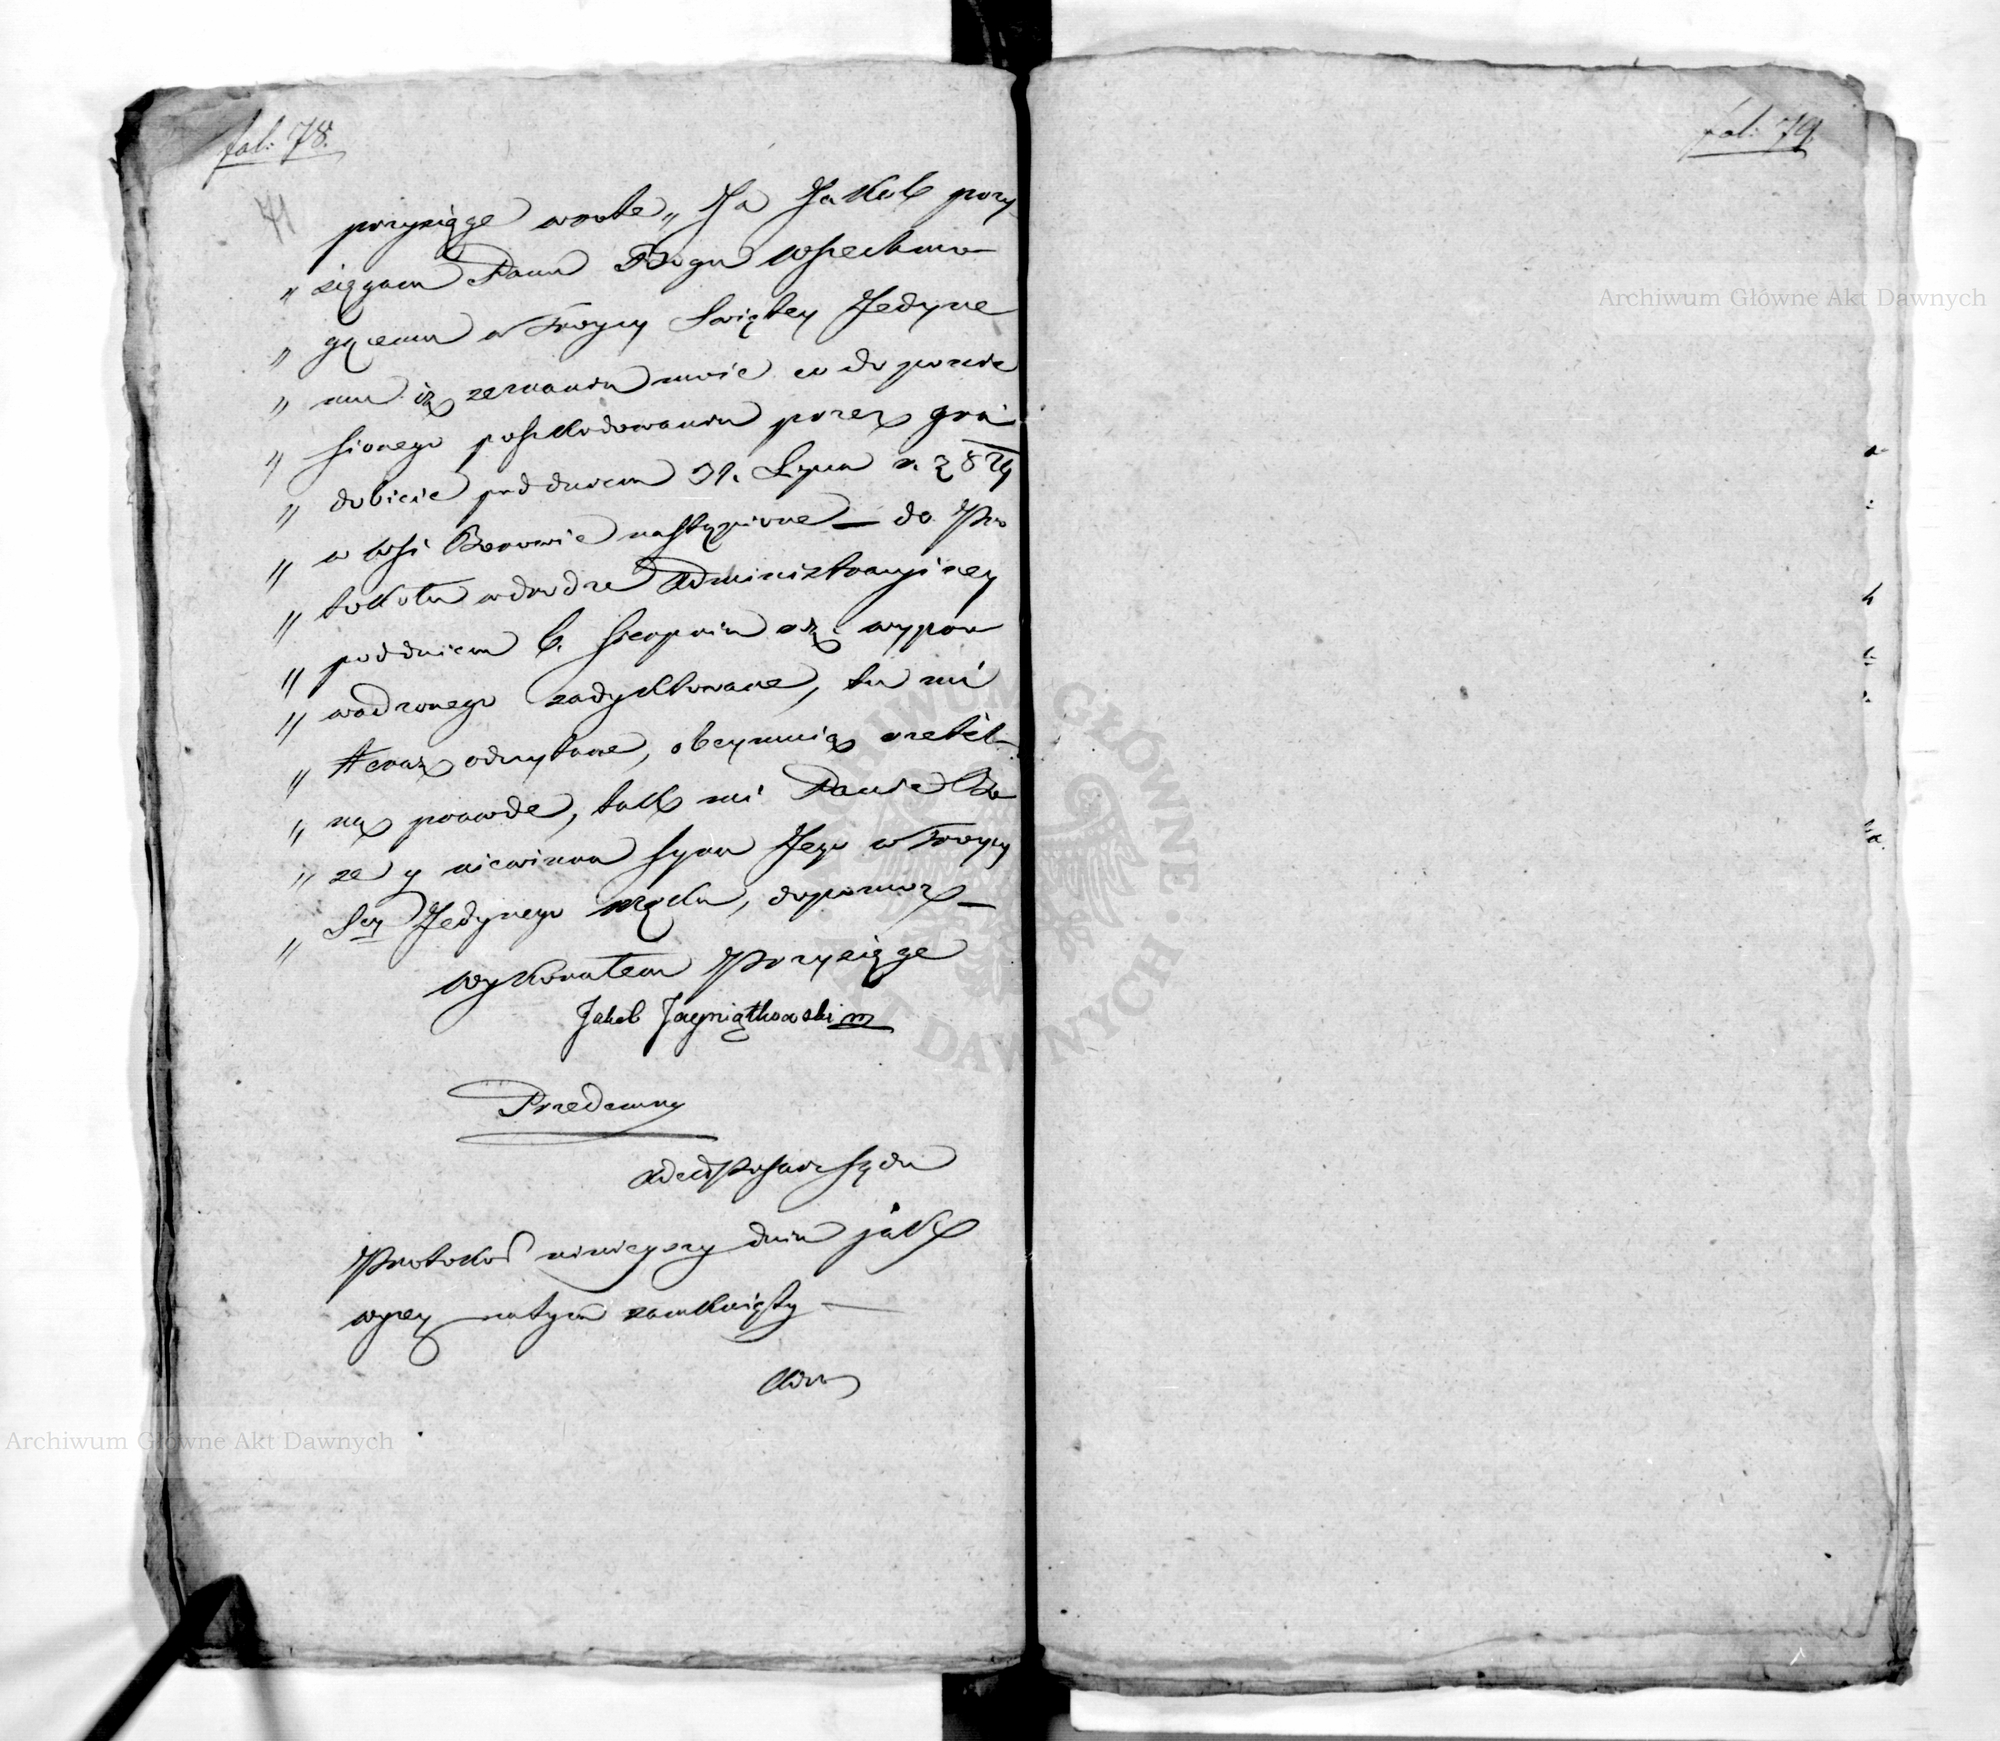 fol: 78.
41
przysięgę w rotę „ Ja Jakob przy
„ sięgam Panu Bogu Wszechmo
„ gącemu w Troycy Swiętey Jedyne
„ mu iż zeznania moie co do ponie
„ sionego poszkodowania przez gra
„ dobicie pod dniem 31. Lipca r. 1819
„ w Wsi nastąpione — do Pro
„ tokołu w drodze Administracyiney
„ pod dniem 6. Sierpnia rż. wypro
„ wadzonego zadyktowane, tu mi
„ teraz odczytane, obeymuią rzetel
„ ną prawdę, tak mi Panie Bo
„ że y niewinna Syna Jego w Troycy
„ Sey Jedynego męka, dopomoż —
Wykonałem Przysięgę
Jakob
Przedemną
Podpisarz Sądu
Protokoł ninieyszy dnia jak
wyzey na tym zamknięty —
fol: 79.
Archiwum Główne Akt Dawnych
Archiwum Główne Akt Dawnych
ARCHIWUM GŁÓWNE AKT DAWNYCH